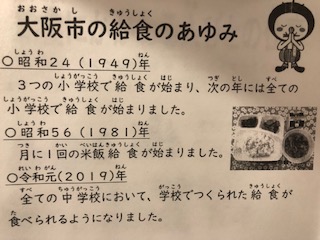 大阪市の給食のあゆみ
〇昭和24(1949)年
3つの小学校で給食が始まり、次の年には全ての
小学校で給食が始まりました。
〇昭和56(1981)年
月に1回の米飯給食が始まりました。
〇令和元(2019)年
全ての中学校において、学校でつくられた給食が
食べられるようになりました。